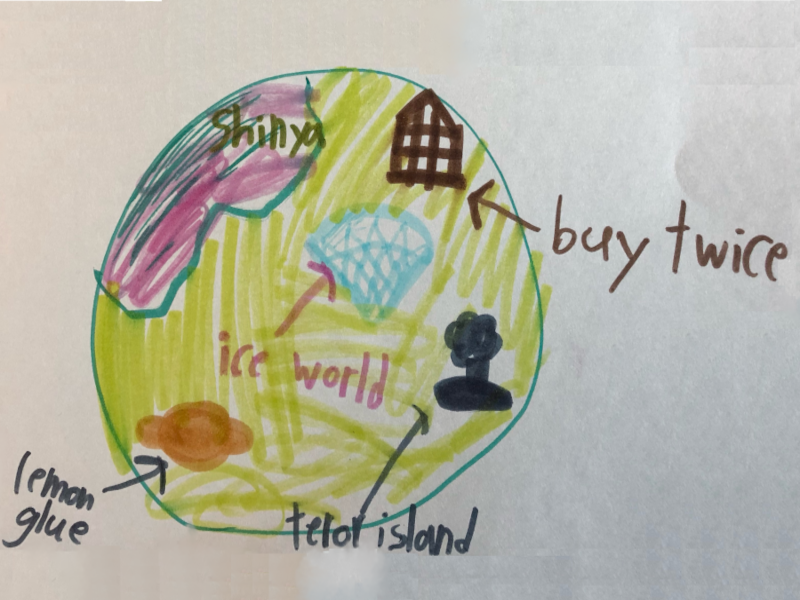 Shinya
buy twice
ice world
lemon
glue
teror island